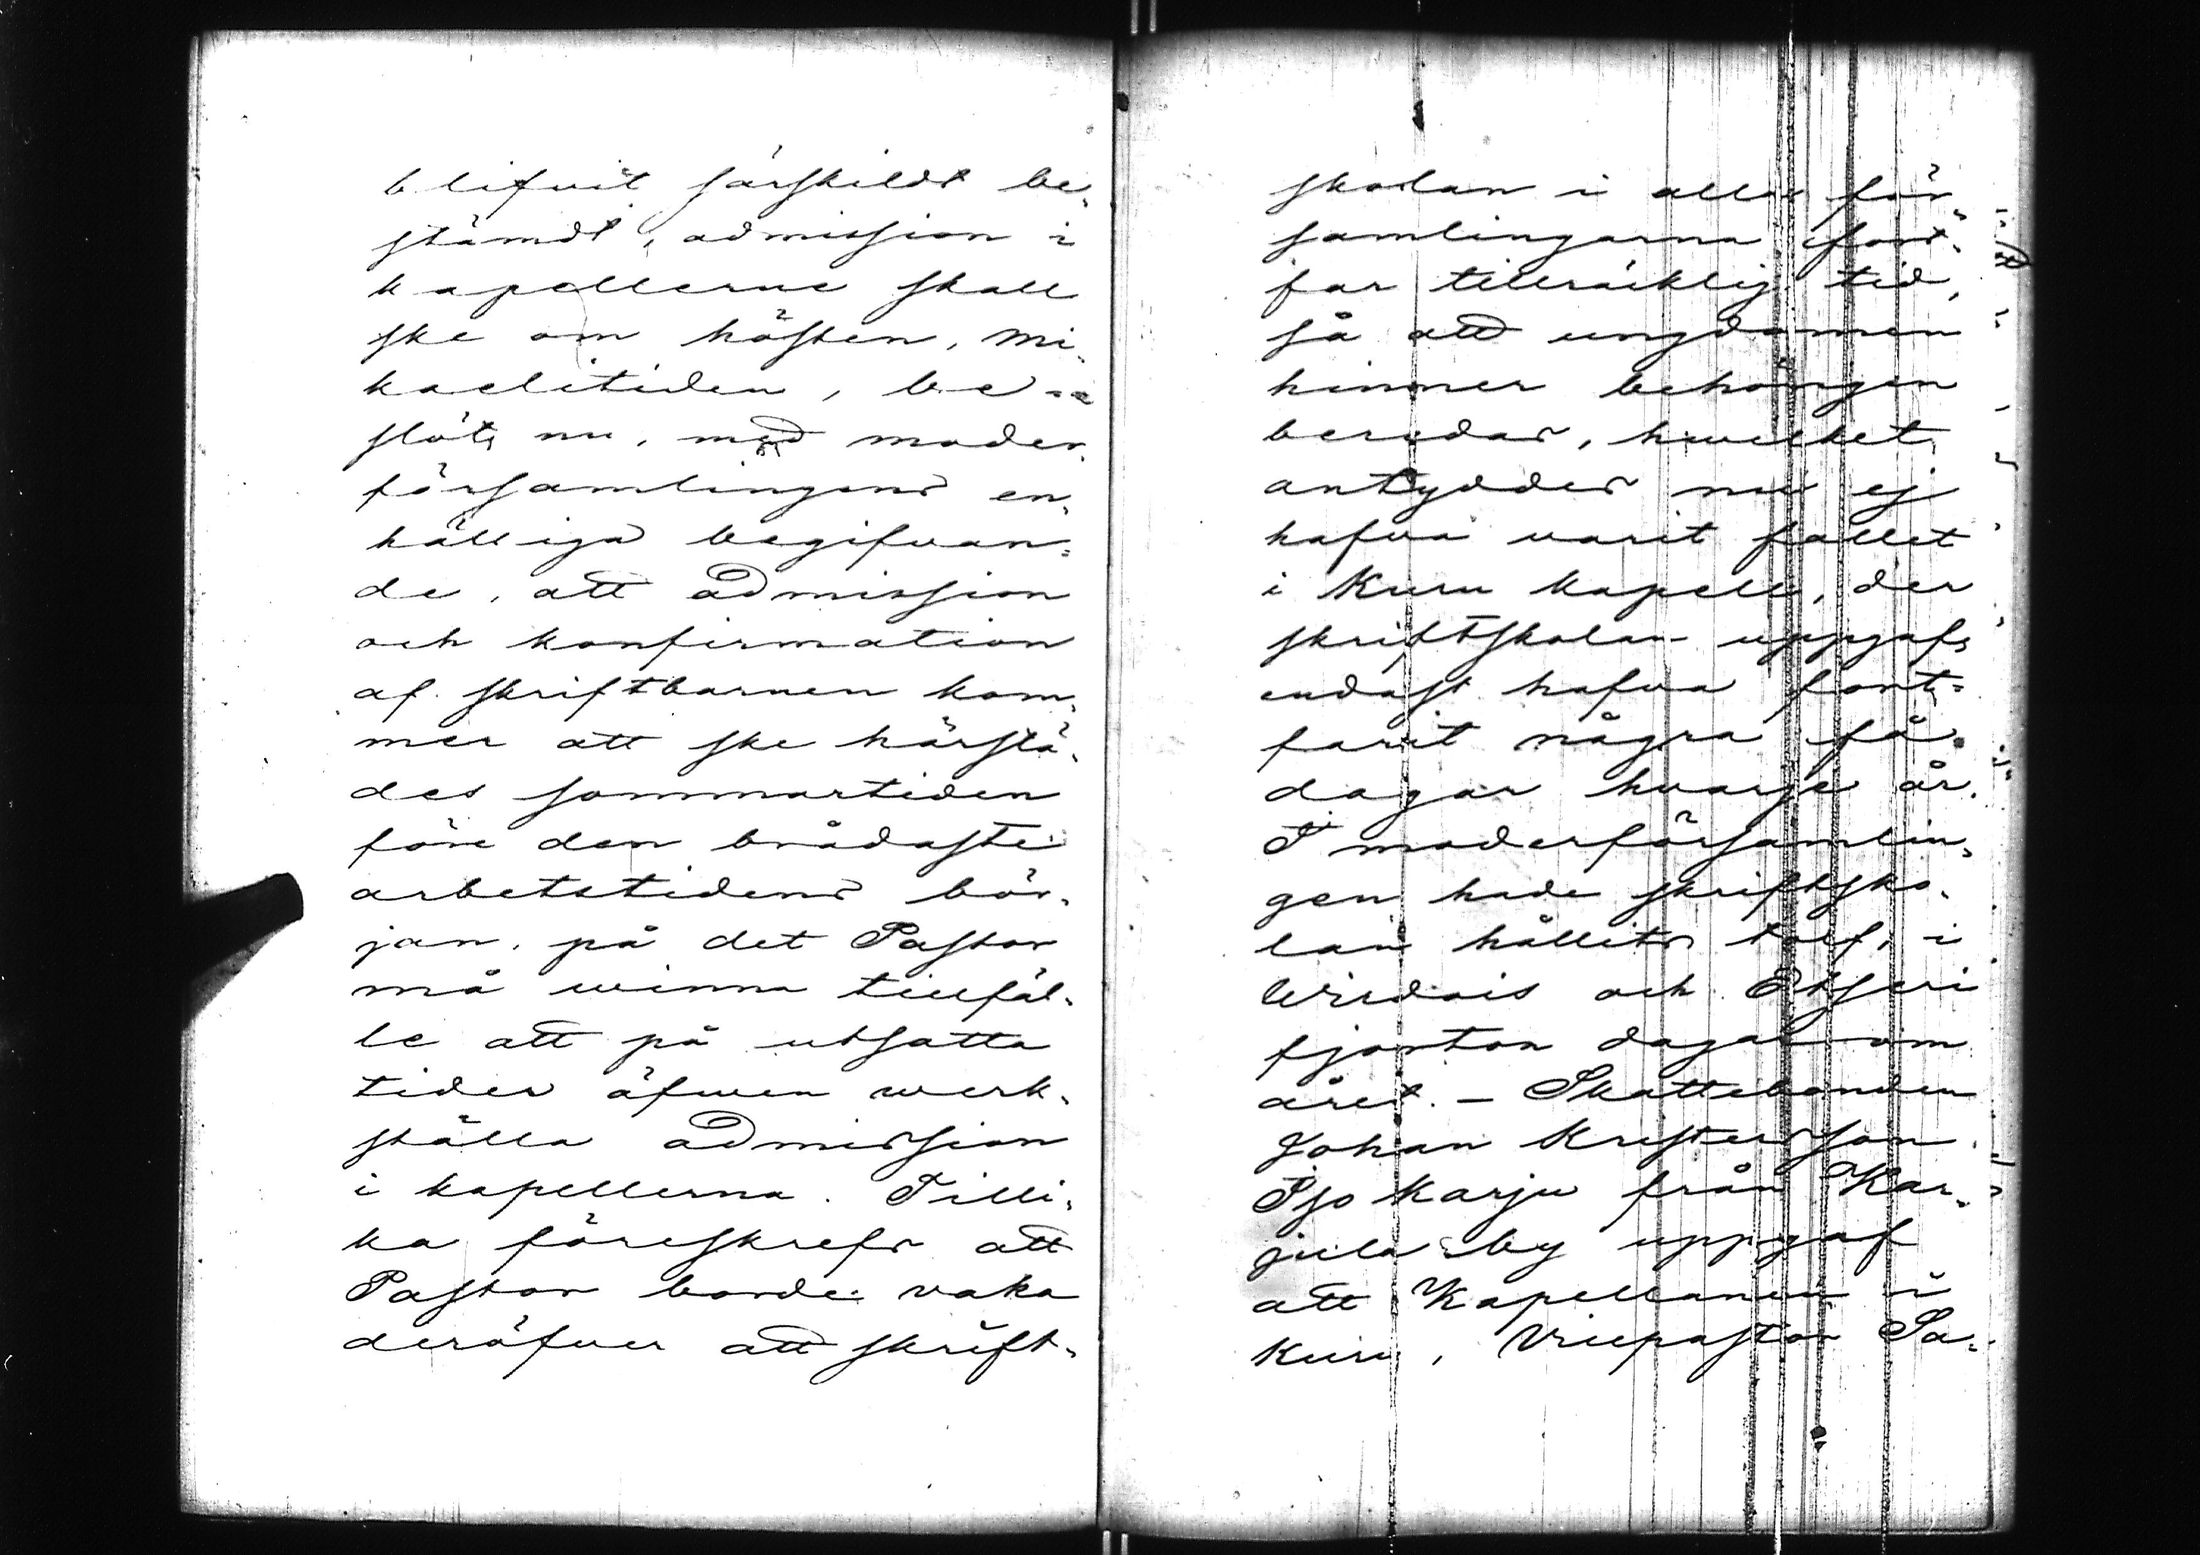 blifvit särskildt be„
stämdt, admission i
kapellerne skall
ske om hösten, Mi„
kaelitiden, be„
slöts nu, med moder„
församlingens en„
hälliga begifvan„
de, att admission
och konfirmation
af skriftbarnen kom„
mer att ske härstä„
des sommartiden
före den brådaste
arbetstidens bör„
jan, på det Pastor
må winna tillfäl„
le att på utsatta
tider äfwen werk„
ställa admission
i kapellerna. Tilli„
ka föreskrefs att
Pastor borde vaka
deröfver att skrift„
skolan i alla för„
samlingarna fort„
far tillräcklig tid,
så att ungdomen
hinner behörigen
beredas, hwilket
antyddes nu ej
hafva varit fallet
i Kuru kapell, der
skriftskolan uppgafs
endast hafva fort„
farit några få
dagar hvarje år.
I moderförsamlin„
gen hade skriftsko„
lan hållits tolf, i
Wirdois och Etseri
fjorton dagar om
året. – Skattebonden
Johan Kristersson
Iso Karju från Kar„
jula by uppgaf
att Kapellanen i
Kuru, Vicepastor Sa„